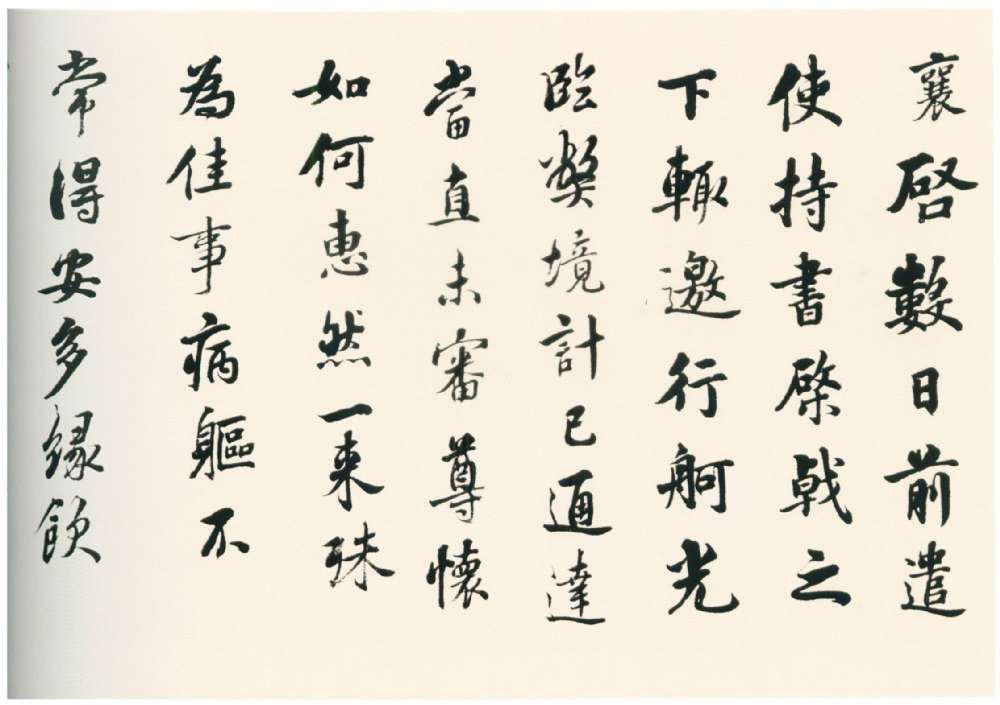 襄啓數日前遣
使持書棨戟之
下輙邀行舸光
臨弊境計已通達
當直未審尊懷
如何惠然一来殊
為佳事病軀不
常得安多緣飲